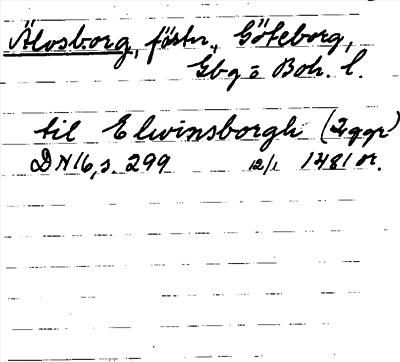 Älvsborg, fästn., Göteborg,
Gbg o Boh. l.
til Elwinsborgh (2 ggr)
DN 16, s. 299 12/1 1481 or.